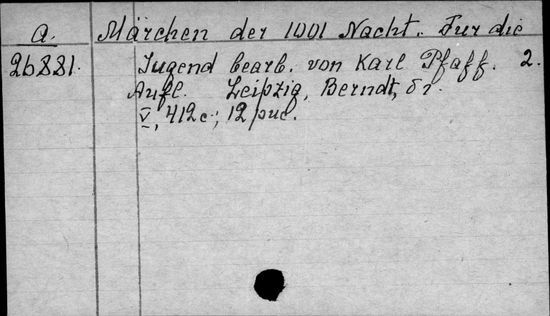 a. Märchen der 1001 Nacht. Fur die
26881. Jugend bearb. von Karl Pfaff. 2.
Aufl. Leipzig, Berndt, б г.
V, 412 с.; 12 рис.